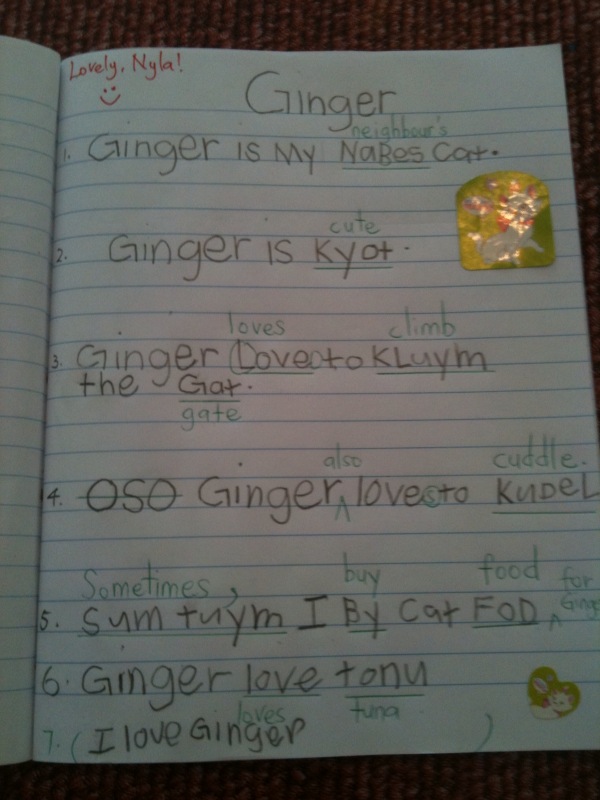 Lovely, Nyla!
Ginger
neighbour's
1. Ginger is my NaBes Cat.
cute
2. Ginger is Kyot.
loves climb
3. Ginger Loves to KLuym
the Gat.
gate
also cuddle.
4. oso Ginger ^ loves to KuDeL
Sometimes, buy food for
5. Sum tuym I By Cat FOD ^ Ginge
6. Ginger love tonu
loves tuna
7. (I love Ginger)